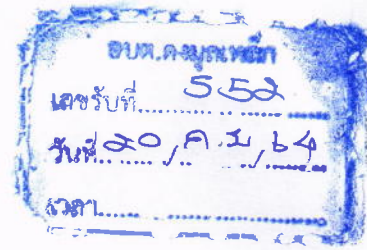 อบต.ดงมูลเหล็ก
เลขรับที่ 552
วันที่ ๒๐ / ค.ม / ๖๔
เวลา